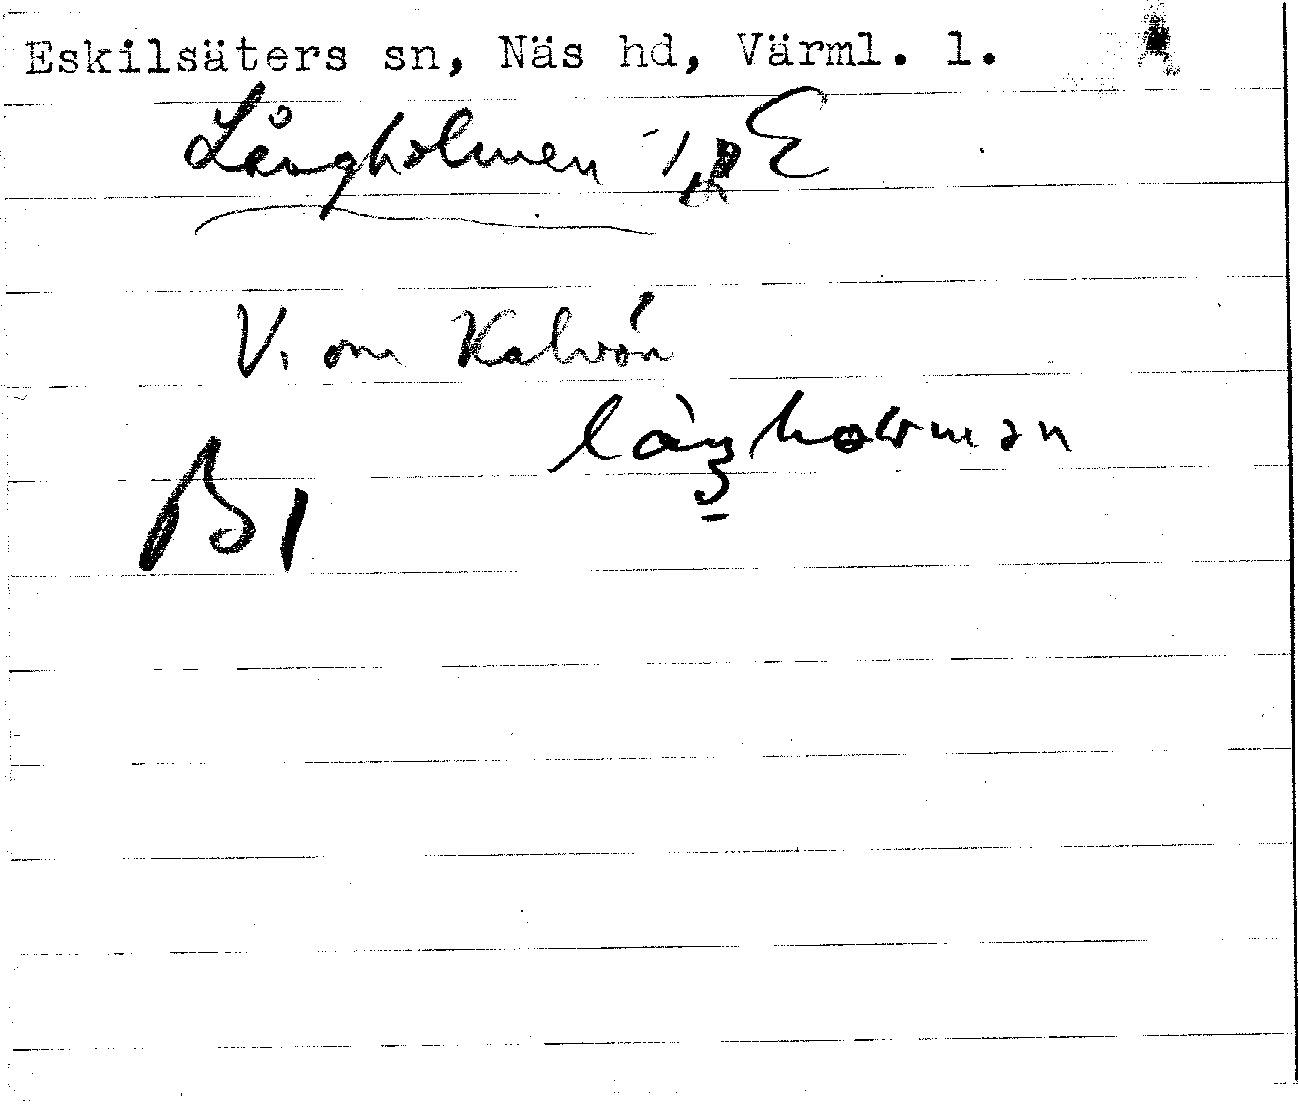 Eskilsäters sn, Näs hd, Värml. l.
Långholmen
V. om Kalvön
làŋholmən
B1